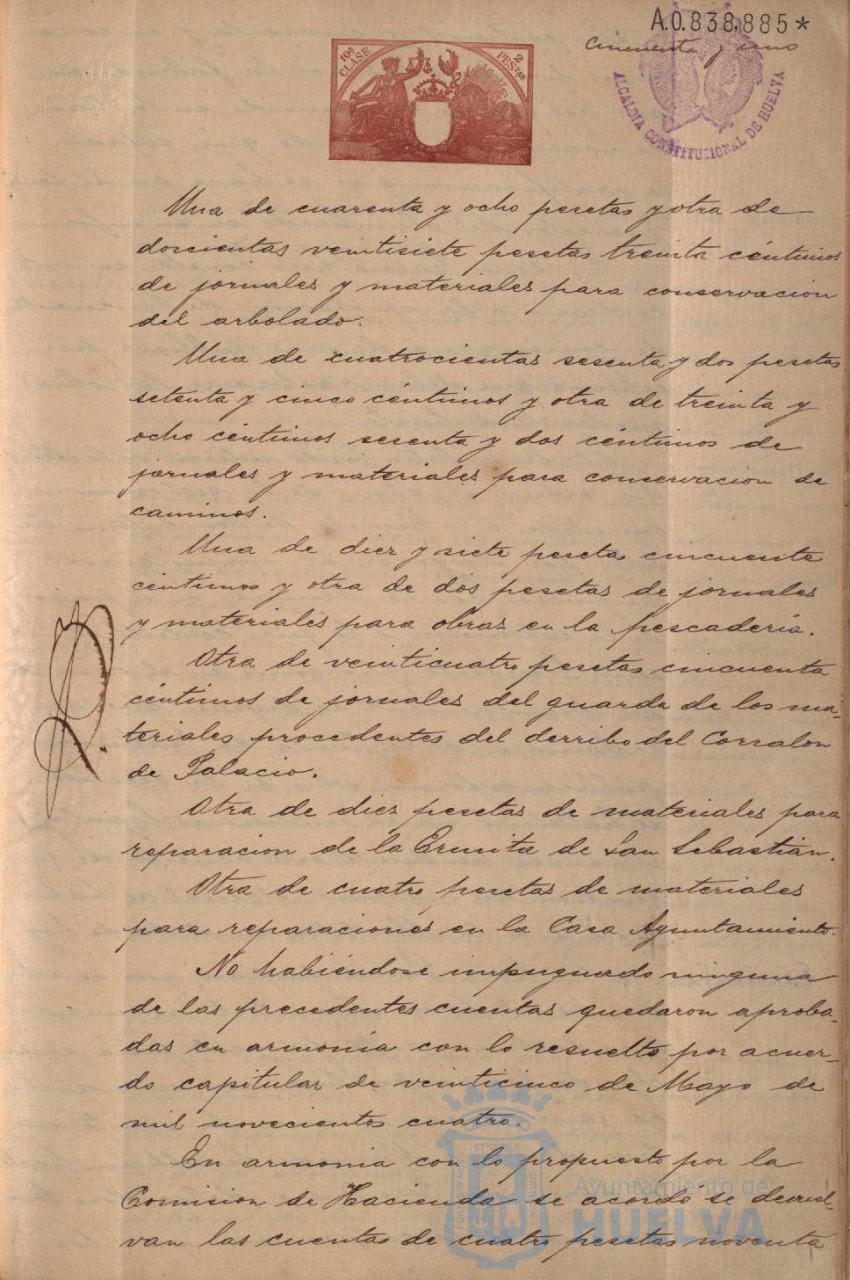 A.0.838,885*
Cincuenta y uno
10ª CLASE
2 PESTAS
ALCALDIA CONSTITUCIONAL DE HUELVA
Una de cuarenta y ocho pesetas y otra de
dorcientas veintisiete pesetas treinta céntimos
de jornales y materiales para conservacion
del arbolado.
Una de cuatrocientas sesenta y dos pesetas
setenta y cinco céntimos y otra de treinta y
ocho céntimos sesenta y dos céntimos de
jornales y materiales para conservacion de
caminos.
Una de diez y siete pesetas cincuente
céntimos y otra de dos pesetas de jornales
y materiales para obras en la pescadería.
Otra de veinticuatro pesetas cincuenta
céntimos de jornales del guarda de los ma-
teriales procedentes del derribo del Corralon
de Palacio.
Otra de diez pesetas de materiales para
reparacion de la Ermita de San Sebastián.
Otra de cuatro pesetas de materiales
para reparaciones en la Casa Ayuntamiento.
No habiéndose impugnado ninguna
de las precedentes cuentas quedaron aproba-
das en armonía con lo resuelto por acuer-
do capitular de veinticinco de Mayo de
mil novecientos cuatro.
En armonia con lo propuesto por la
Comision de Hacienda se acordó se devuel-
van las cuentas de cuatro pesetas noventa
Ayuntamiento de
HUELVA